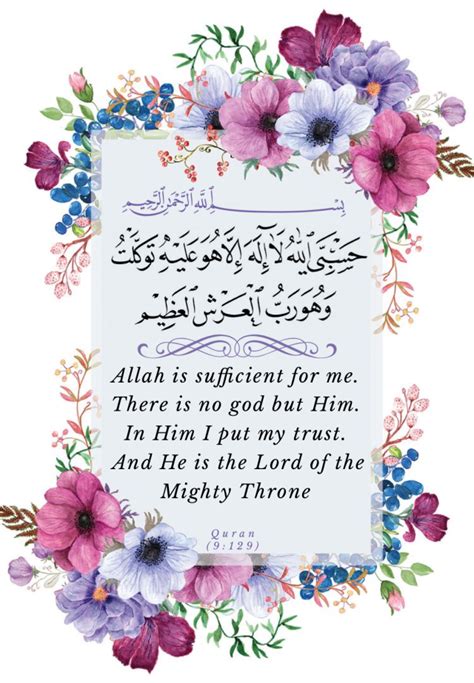 بِسْمِ اللَّهِ الرَّحْمَٰنِ الرَّحِيمِ
حَسْبِيَ اللَّهُ لَا إِلَٰهَ إِلَّا هُوَ عَلَيْهِ تَوَكَّلْتُ
وَهُوَ رَبُّ الْعَرْشِ الْعَظِيمِ
Allah is sufficient for me.
There is no god but Him.
In Him I put my trust.
And He is the Lord of the
Mighty Throne
Quran
(9:129)